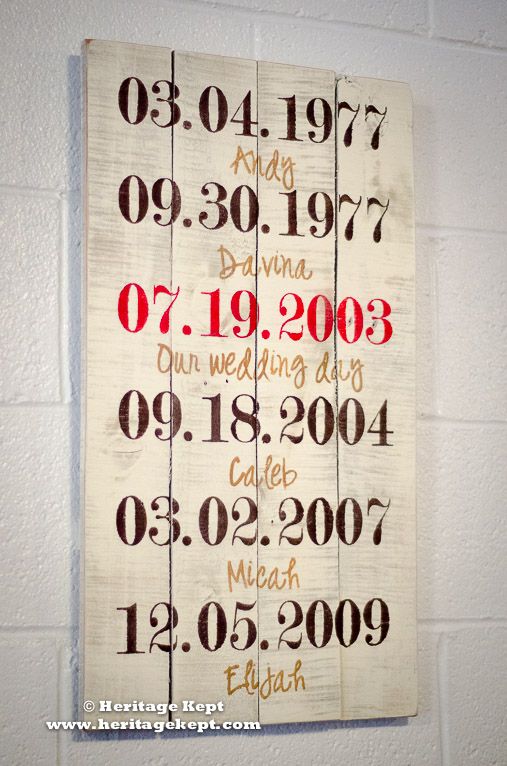 03.04.1977
Andy
09.30.1977
Davina
07.19.2003
Our wedding day
09.18.2004
Caleb
03.02.2007
Micah
12.05.2009
Elijah
© Heritage Kept
www.heritagekept.com